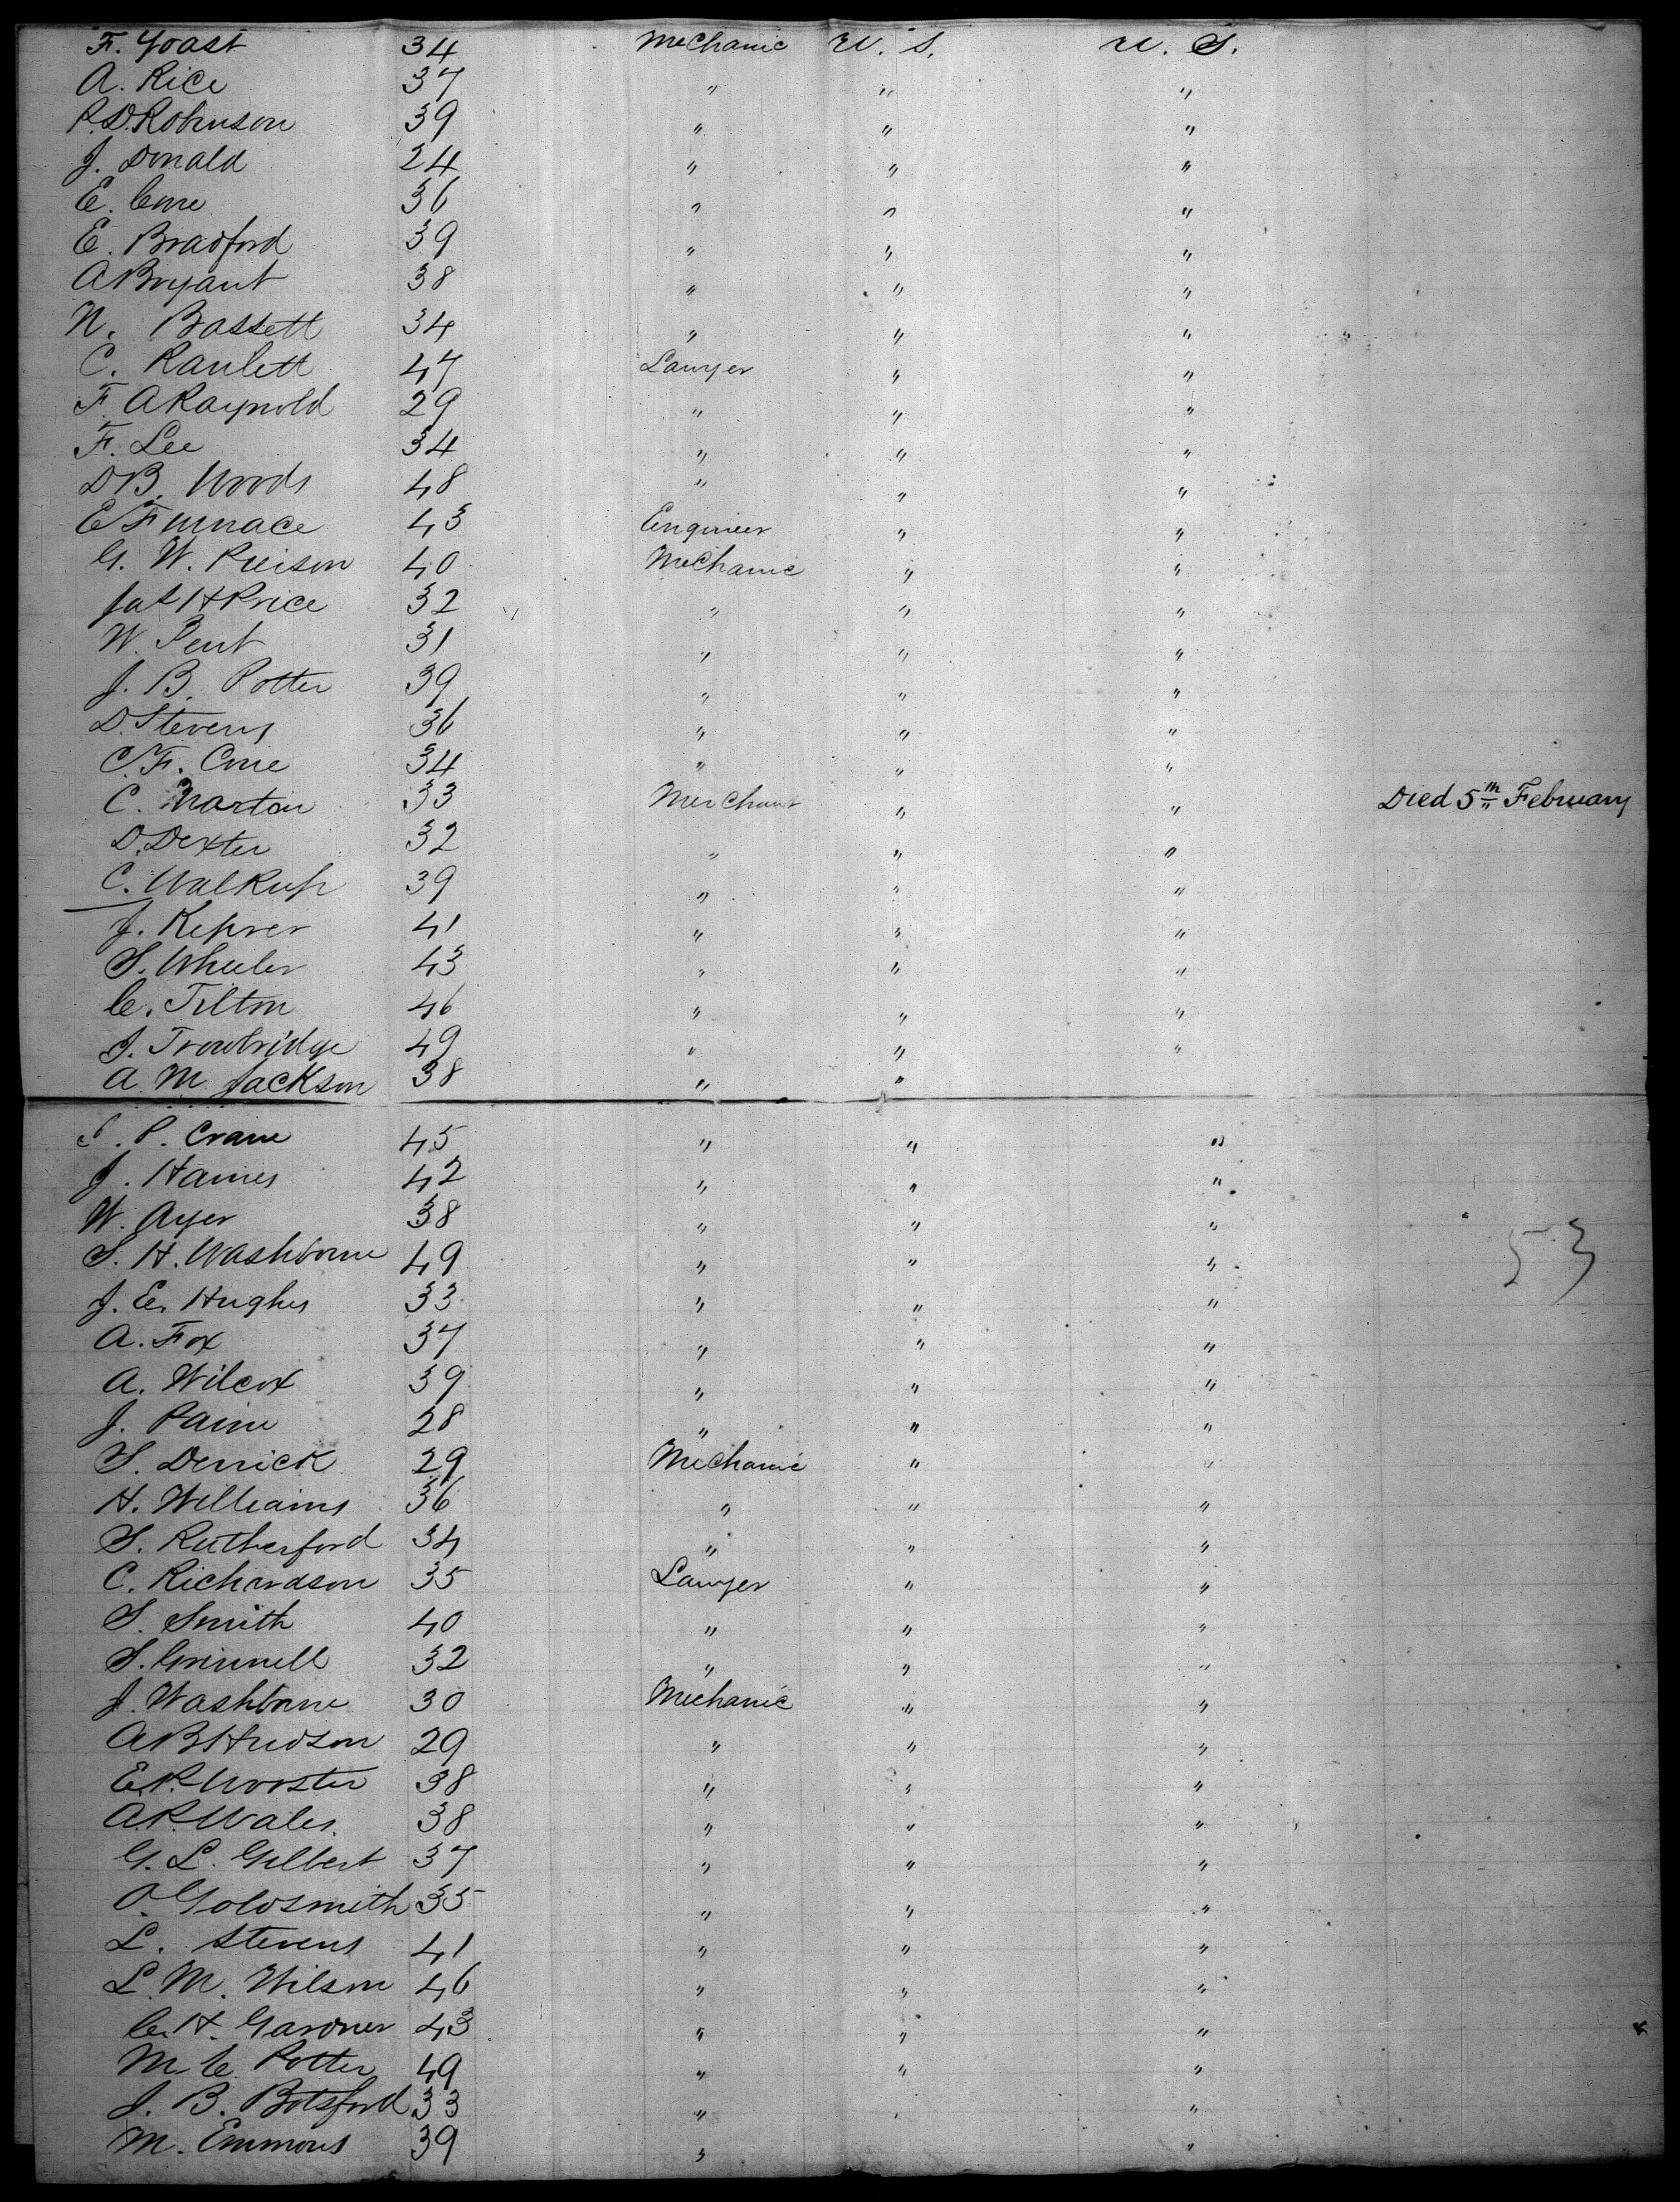 F. Yoast 34 Mechanic U. S. U. S.
A. Rice 37 " " "
R.D. Robinson 39 " " "
J. Donald 24 " " "
E. Cone 36 " " "
E. Bradford 39 " " "
A Bryant 38 " " "
N. Bassett 34 " " "
C. Ranlett 47 Lawyer " "
F. A Raynold 29 " " "
F. Lee 34 " " "
D B. Woods 48 " " "
E Furnace 43 Engineer " "
G. W. 40 Mechanic " "
Jas H Price 32 " " "
W. Pent 31 " " "
J. B. Potter 39 " " "
D. Stevens 36 " " "
C. F. Cone 34 " " "
C. 33 Merchant " " Died 5th February
D. Dexter 32 " " "
C. Walkup 39 " " "
J. 41 " " "
S. Wheeler 43 " " "
C. Tilton 46 " " "
J. Trowbridge 49 " " "
A. M. Jackson 38 " "
P. Crane 45 " " "
J. Haines 42 " " "
W. Ayer 38 " " "
S. H. Washborne 49 " " "
53
J. E. Hughes 33 " " "
A. Fox 37 " " "
A. Wilcox 39 " " "
J. Paine 28 " " "
S. Derrick 29 Mechanic " "
H. Williams 36 " " "
S. Rutherford 34 " " "
C. Richardson 35 Lawyer " "
S. Smith 40 " " "
S. Grinnell 32 " " "
J. Washborne 30 Mechanic " "
A B Hudson 29 " " "
E. R. Wooster 38 " " "
A. R. Wales. 38 " " "
G. L. Gilbert 37 " " "
O. Goldsmith 35 " " "
L. Stevens 41 " " "
L. M. Wilson 46 " " "
C. H. Gardner 43 " " "
M. C. Potter 49 " " "
J. B. Botsford 33 " " "
M. Emmons 39 " "